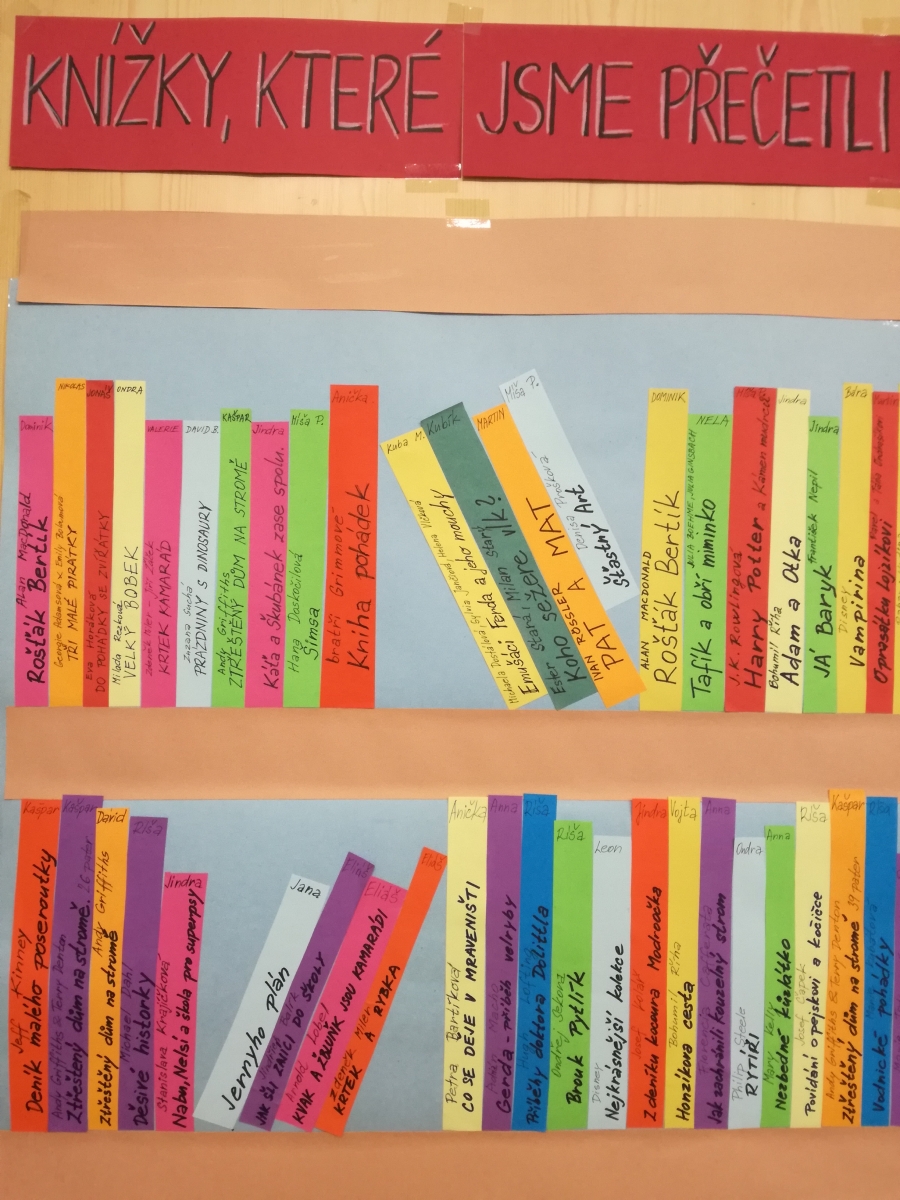 KNÍŽKY, KTERÉ JSME PŘEČETLI
Dominik
Alan MacDonald
Rošťák Bertík
NIKOLAS
Georgie Adamsová & Emily Bolamová
TŘI MALÉ PIRÁTKY
JONÁŠ
Eva Horáková
DO POHÁDKY SE ZVÍŘÁTKY
ONDRA
Milada Rezková
VELKÝ BOBEK
VALERIE
KRTEK KAMARÁD
DAVID B.
Zuzana Suchá
PRÁZDNINY S DINOSAURY
KAŠPAR
Andy Griffiths
ZTŘEŠTĚNÝ DŮM NA STROMĚ
Jindra
Káťa a Škubánek zase spolu.
Míša P.
Hana Doskočilová
Šimsa
Anička
bratři Grimové
Kniha pohádek
Kuba M.
Emušáci Ferda a jeho mouchy
Kubík
Ester Stará, Milan Starý
Koho sežere vlk?
MARTIN
IVAN RÖSSLER
PAT A MAT
Míša P.
Denisa Prošková
Šťastný Art
DOMINIK
ALAN MACDONALD
Rošťák Bertík
NELA
JULIA BOEHME, JULIA GINSBACH
Tafík a obří miminko
J.K. Rowlingová
Harry Potter a Kámen mudrců
Jindra
Bohumil Říha
Adam a Otka
Jindra
František Nepil
JÁ Baryk
Bára
Disney
Vampirina
O prasátku Lojzíkovi
Kašpar
Jeff Kinney
Deník malého poseroutky
Kašpar
Andy Griffiths & Terry Denton
Ztřeštěný dům na stromě. 26 pater
David
Andy Griffiths
Ztřeštěný dům na stromě
Ríša
Michael Dahl
Děsivé historky
Jindra
Stanislava Krajíčková
Naban, Nelsí a škola pro superpsy
Jana
Jennyho plán
Eliáš
JAK ŠLI ZVÍCI DO ŠKOLY
Eliáš
Arnold Lobel
KVAK A ŽBLUŇK JSOU KAMARÁDI
Eliáš
Zdeněk Miler
KRTEK A RYBKA
Anička
Petra Bartíková
CO SE DĚJE V MRAVENIŠTI
Anna
Gerda - příběh velryby
Ríša
Hugh Lofting
Příběhy doktora Dolittla
Ríša
Ondřej Sekora
Brouk Pytlík
Leon
Disney
Nejkrásnější kolekce
Jindra
Josef Kolář
Z deníku kocoura Modroočka
Vojta
Bohumil Říha
Honzíkova cesta
Anna
Jak zachránili kouzelný strom
Ondra
Philip Steele
RYTÍŘI
Anna
Nezbedné kůzlátko
Ríša
Josef Čapek
Povídání o pejskovi a kočičce
Kašpar
Andy Griffiths & Terry Denton
Ztřeštěný dům na stromě 39 pater
Ríša
Vodnické pohádky